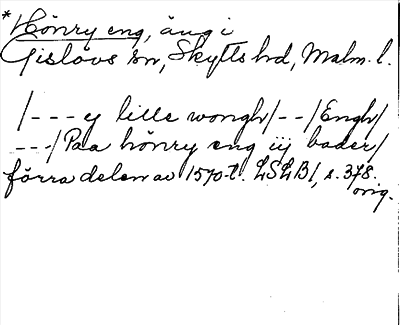 *Hönry eng, äng i
Gislövs sn, Skytts hd, Malm. l.
/--- y lille wongh/--/Engh/
---/Paa hönry eng iij bader/
förra delen av 1570-t. LSLB 1, s. 378.
orig.